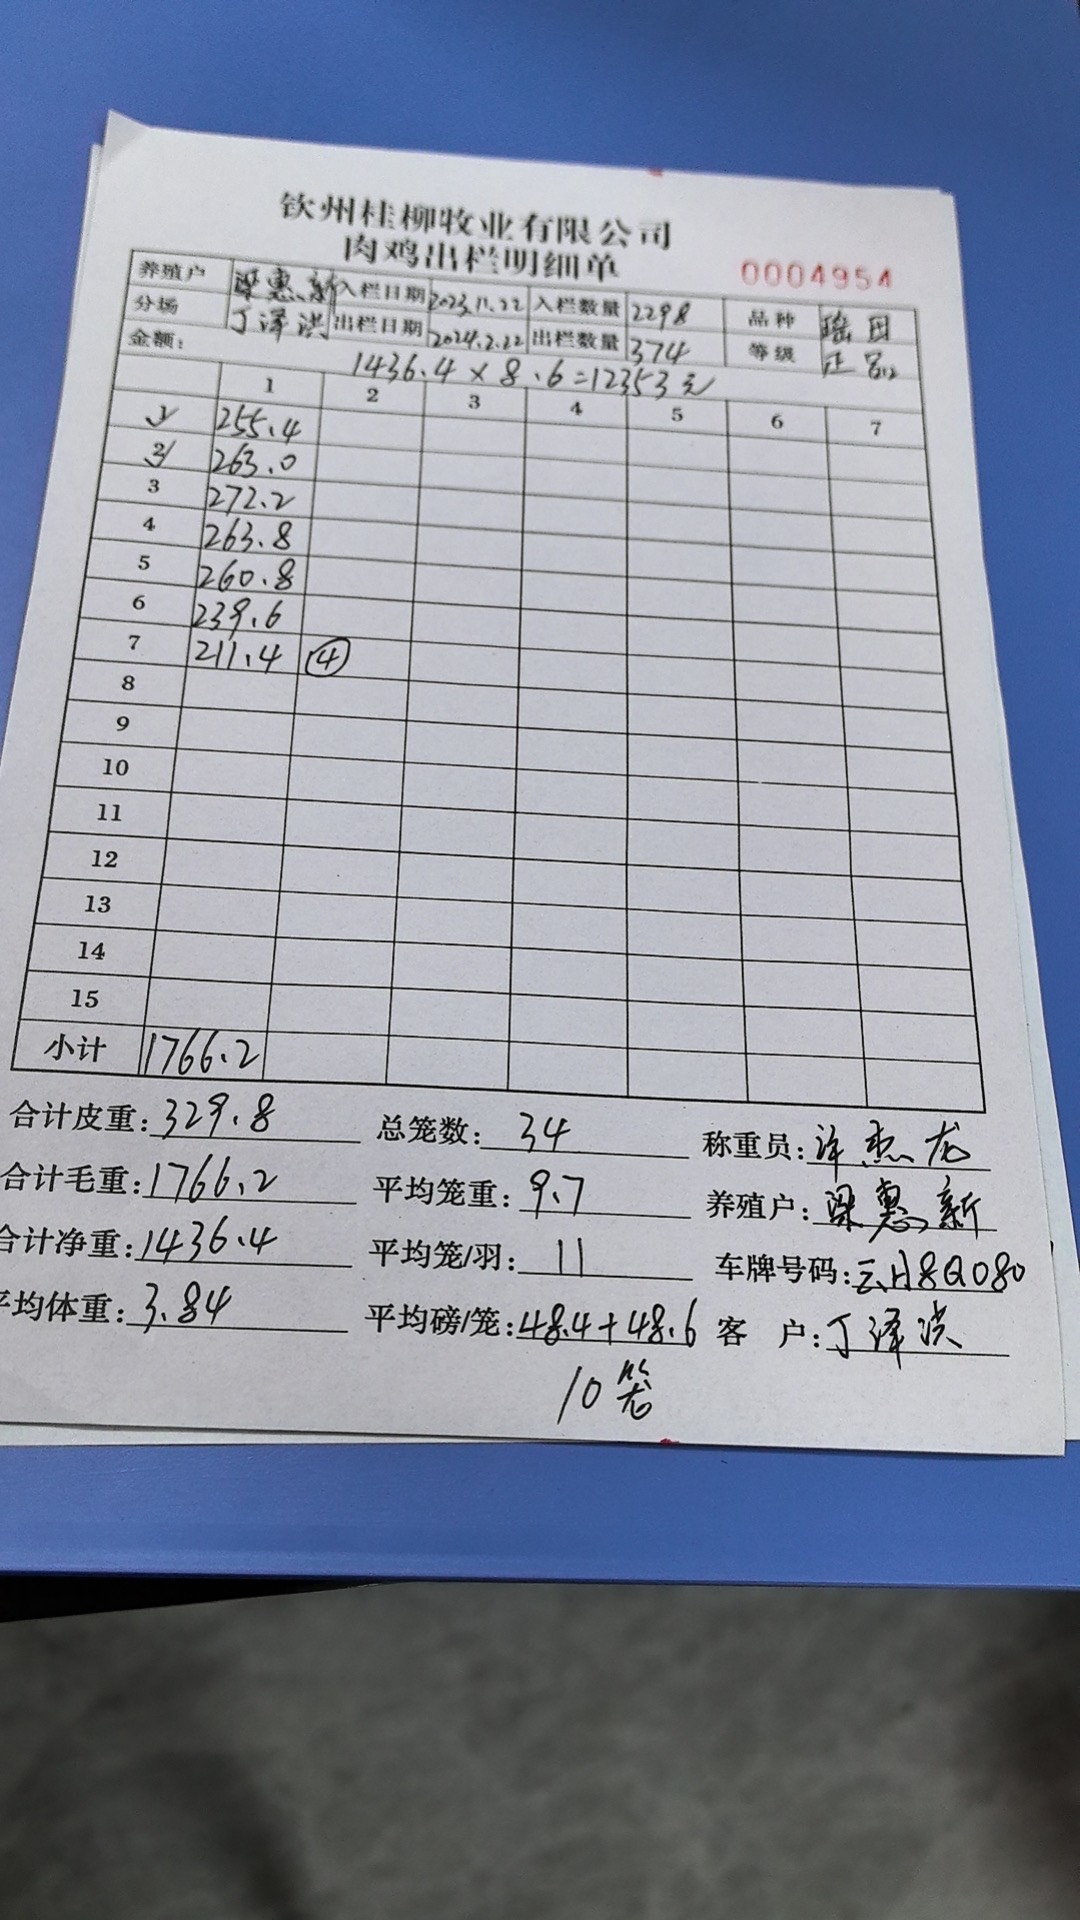 钦州桂柳牧业有限公司
肉鸡出栏明细单
0004954
养殖户 梁惠新 入栏日期 2023.11.22 入栏数量 2298 品种 瑶
分场 丁泽洪 出栏日期 2024.2.22 出栏数量 374 等级 正
金额: 1436.4 × 8.6=12353元
1 2 3 4 5 6 7
1 255.4
2 263.0
3 272.2
4 263.8
5 260.8
6 239.6
7 211.4 ④
8
9
10
11
12
13
14
15
小计 1766.2
合计皮重: 329.8 总笼数: 34 称重员: 许杰龙
合计毛重: 1766.2 平均笼重: 9.7 养殖户: 梁惠新
合计净重: 1436.4 平均笼/羽: 11 车牌号码: 云A8Q080
平均体重: 3.84 平均磅/笼: 48.4+48.6 客 户: 丁泽洪
10笼